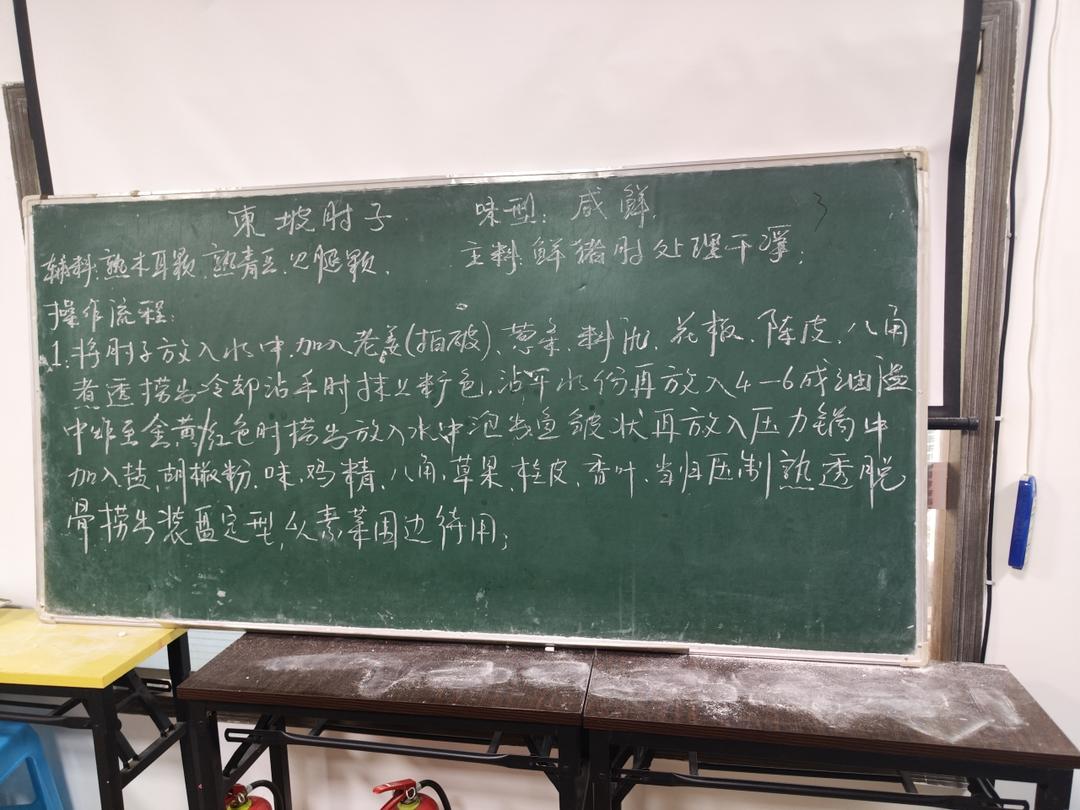 東坡肘子 味型：咸鲜
辅料：熟木耳颗、熟青豆、火腿颗、 主料：鲜猪肘处理干净；
操作流程：
1、将肘子放入水中、加入老姜(拍破)、葱条、料酒、花椒、陈皮、八角
煮透捞出冷却沾手时抹上粉色，沾干水份再放入4-6成油温
中炸至金黄红色时捞出放入水中泡发皱状再放入压力锅中
加入盐、胡椒粉、味、鸡精、八角、草果、桂皮、香叶、当归压制熟透脱
骨捞出装皿定型，以素菜围边待用；